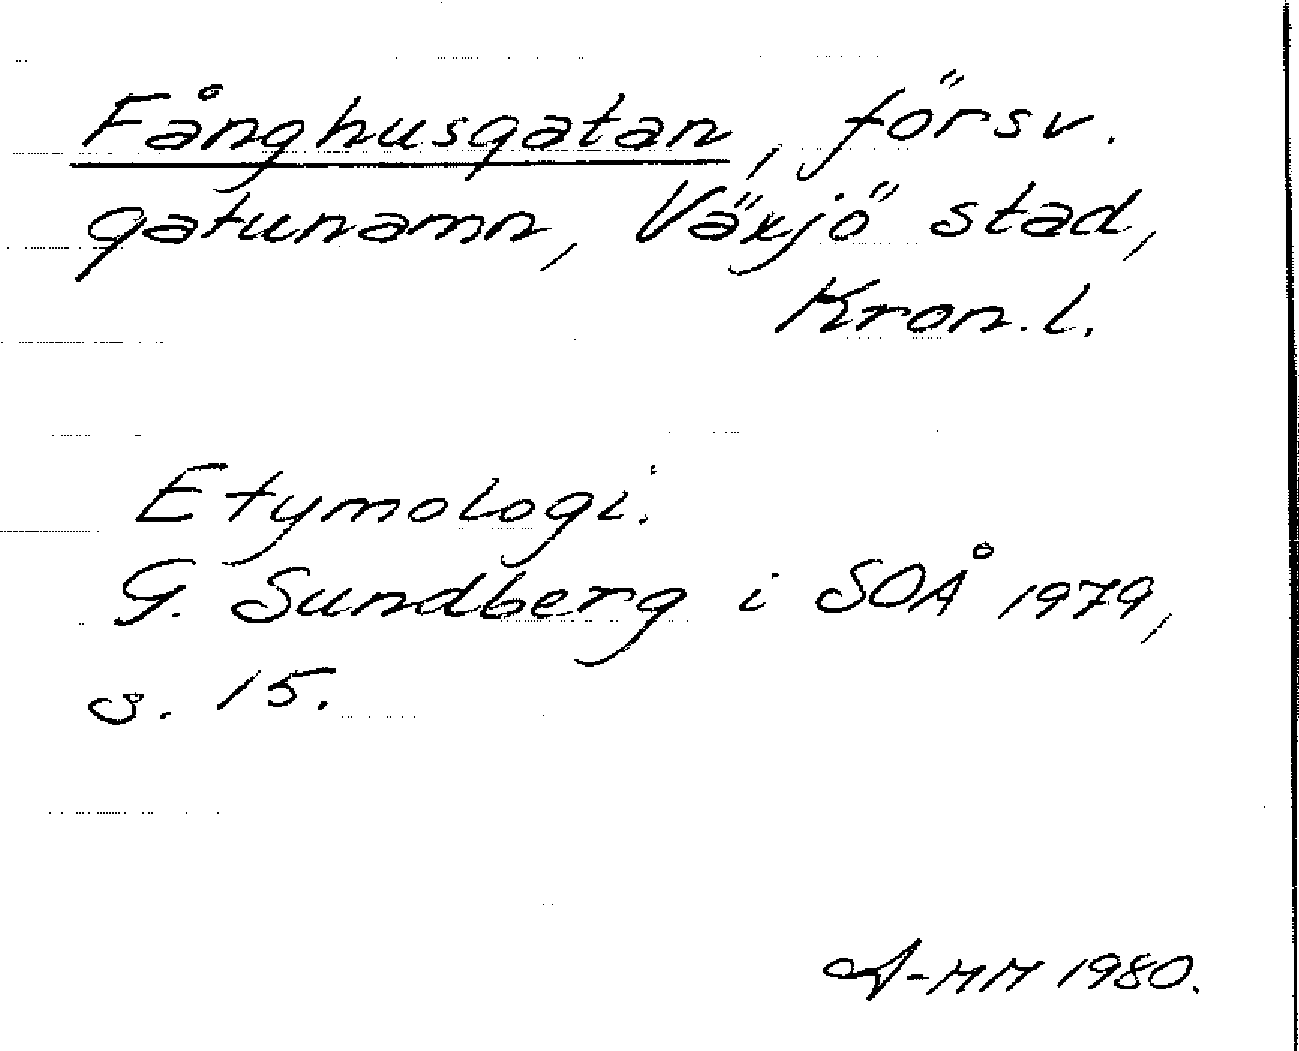 Fånghusgatan, försv.
gatunamn, Växjö stad,
Kron.l.
Etymologi.
G. Sundberg i SOÅ 1979,
s. 15.
A-MM 1980.